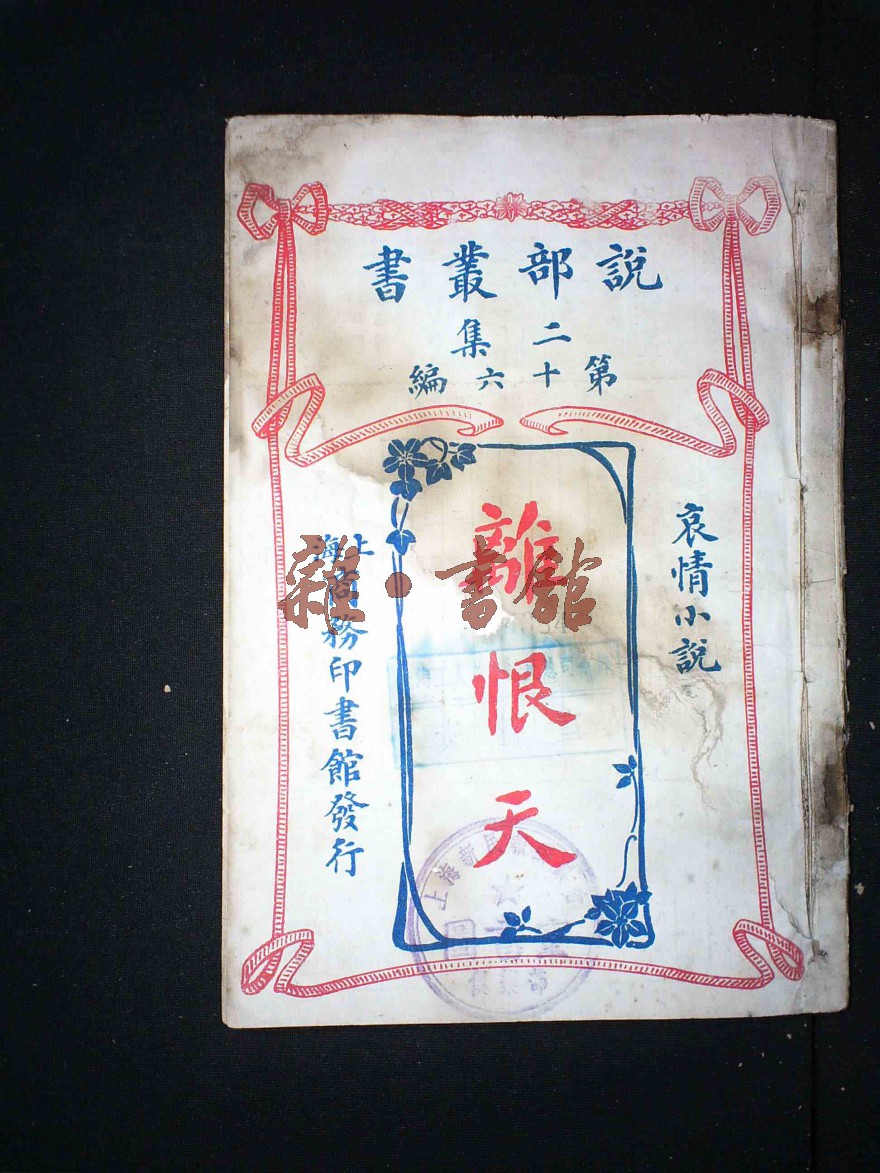 說部叢書
二集
第十六編
哀情小說
離恨天
上海商務印書館發行
雜·書館
上海新
部